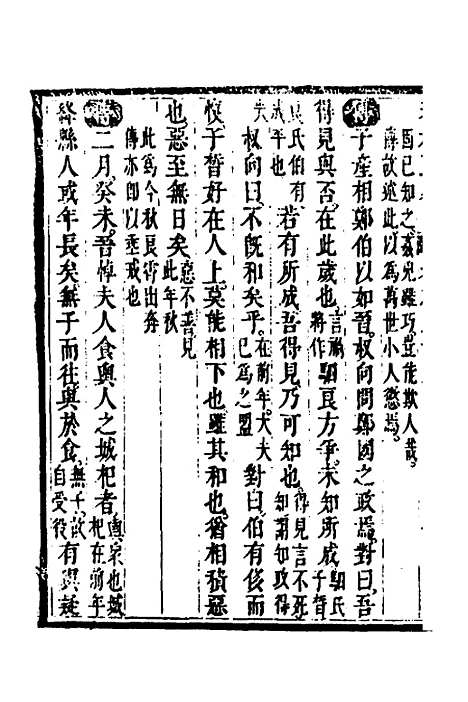 固已知之姦兇雖巧豈能欺人哉
傳故述此以爲萬世小人懲焉
傳子產相鄭伯以如晉叔向問鄭國之政焉對曰吾
得見與否在此歲也言禍將作駟良方爭未知所成駟氏子晳
良氏伯有成平也若有所成吾得見乃可知也得見言不死知謂知政得
失叔向曰不既和矣乎在前年大夫已爲之盟對曰伯有侈而
愎子晳好在人上莫能相下也雖其和也猶相積惡
也惡至無日矣惡不善見此年秋
此爲今秋良霄出奔
傳亦即以垂戒也
傳二月癸未晉悼夫人食輿人之城杞者輿衆也城杞在前年
絳縣人或年長矣無子而往與於食無子故自受役有與疑